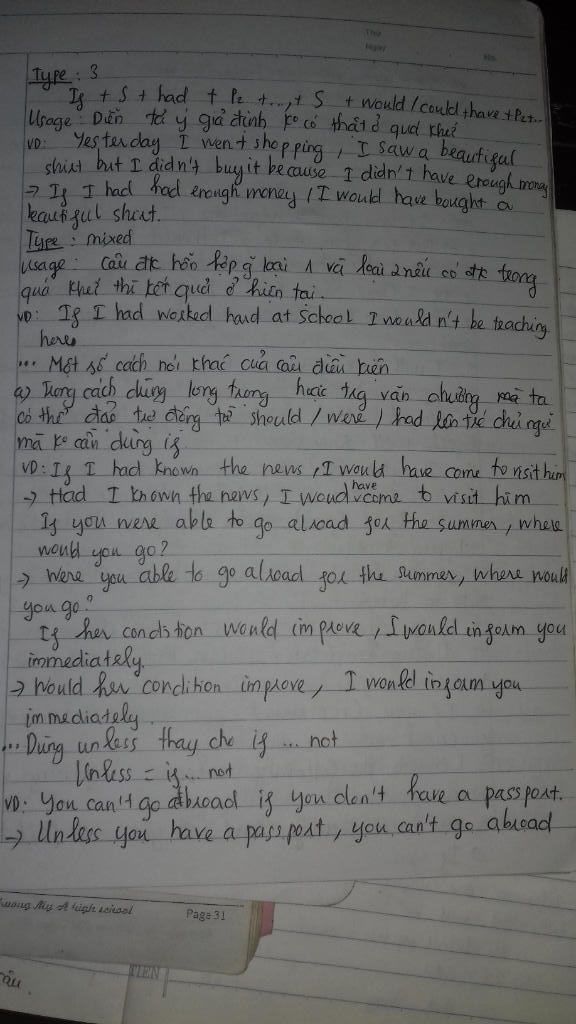 Thứ
Ngày
No.
Type : 3
If + S + had + P2 + ..., + S + would / could + have + P2+...
Usage : Diễn tả ý giả định ko có thật ở quá khứ
VD: Yesterday I went shopping, I saw a beautiful
shirt but I didn't buy it because I didn't have enough money
→ If I had had enough money, I would have bought a
beautiful shirt.
Type : mixed
Usage : Câu đk hỗn hợp g loại 1 và loại 2 nếu có đk trong
quá khứ thì kết quả ở hiện tại.
VD: If I had worked hard at school I wouldn't be teaching
here
... Một số cách nói khác của câu điều kiện
a) Trong cách dùng long trọng hoặc trg văn chương mà ta
có thể đảo trợ động từ should / were / had lên trc chủ ngữ
mà ko cần dùng if
VD: If I had known the news, I would have come to visit him
→ Had I known the news, I woud have come to visit him
If you were able to go abroad for the summer, where
would you go?
→ Were you able to go abroad for the summer, where would
you go?
If her condition would improve, I would inform you
immediately.
→ Would her condition improve, I would inform you
immediately.
... Dùng unless thay cho if ... not
Unless = if ... not
VD: You can't go abroad if you don't have a passport.
→ Unless you have a passport, you can't go abroad
My A high school
Page 31
TIEN